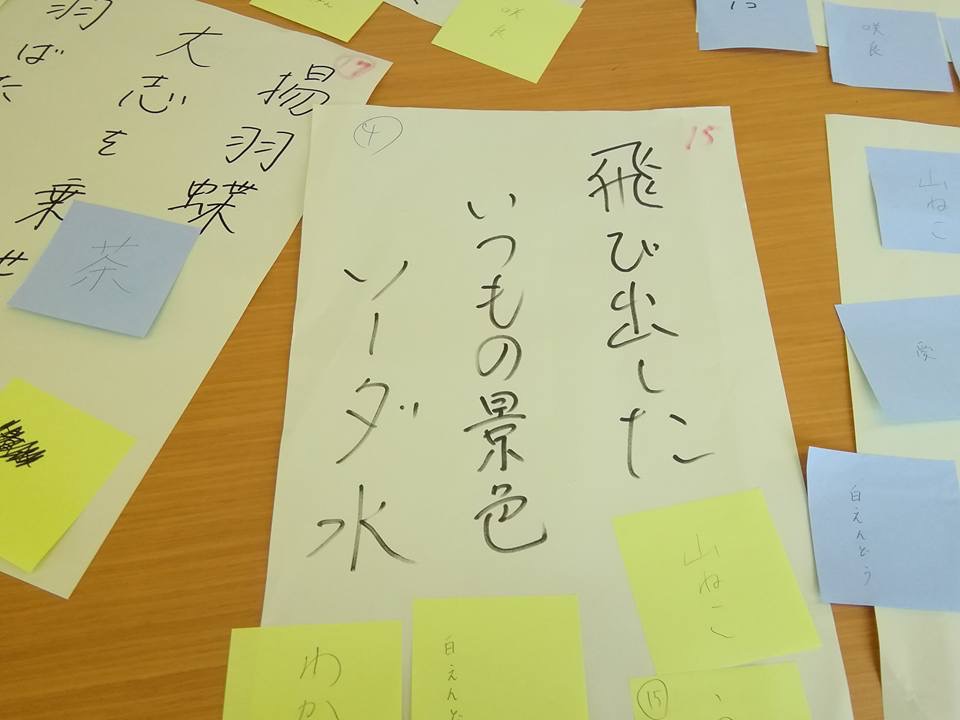 15
④
飛び出した
いつもの景色
ソーダ水
山ねこ
白えんど
わか
⑮
17
揚羽蝶
大志を乗せ
羽ば
茶
咲良
咲良
山ねこ
愛
白えんどう